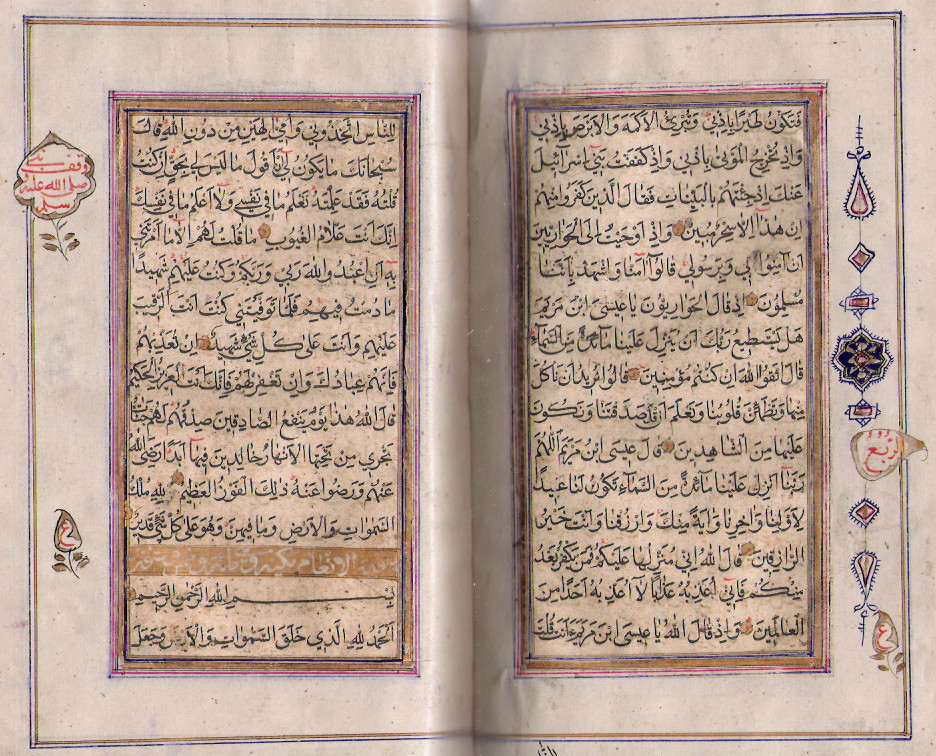 فتكون طيرا باذني وتبرئ الاكمه والابرص باذني
واذ تخرج الموتى باذني واذ كففت بني اسرآئيل
عنك اذ جئتهم بالبينات فقال الذين كفروا منهم
ان هذا الا سحر مبين واذ اوحيت الى الحواريين
ان آمنوا بي وبرسولي قالوا آمنا واشهد باننا
مسلمون اذ قال الحواريون يا عيسى ابن مريم
هل يستطيع ربك ان ينزل علينا مآئدة من السمآء
قال اتقوا الله ان كنتم مؤمنين قالوا نريد ان ناكل
منها وتطمئن قلوبنا ونعلم ان قد صدقتنا ونكون
عليها من الشاهدين قال عيسى ابن مريم اللهم
ربنا انزل علينا مآئدة من السمآء تكون لنا عيدا
لاولنا واخرنا واية منك وارزقنا وانت خير
الرازقين قال الله اني منزلها عليكم فمن يكفر بعد
منكم فاني اعذبه عذابا لا اعذبه احدا من
العالمين واذ قال الله يا عيسى ابن مريم ءانت قلت
الربع
ع
للناس اتخذوني وامي الهين من دون الله قالت
سبحانك ما يكون لي ان اقول ما ليس لي بحق ان كنت
قلته فقد علمته تعلم ما في نفسي ولا اعلم ما في نفسك
انك انت علام الغيوب ما قلت لهم الا ما امرتني
به ان اعبدوا الله ربي وربكم وكنت عليهم شهيدا
ما دمت فيهم فلما توفيتني كنت انت الرقيب
عليهم وانت على كل شئ شهيد ان تعذبهم
فانهم عبادك وان تغفر لهم فانك انت العزيز الحكيم
قال الله هذا يوم ينفع الصادقين صدقهم لهم جنات
تجري من تحتها الانهار خالدين فيها ابدا رضي الله
عنهم ورضوا عنه ذلك الفوز العظيم لله ملك
السموات والارض وما فيهن وهو على كل شئ قدير
الانعام مكية
بسم الله الرحمن الرحيم
الحمد لله الذي خلق السموات والارض وجعل
وقف النبي
صلى الله عليه
وسلم
ع